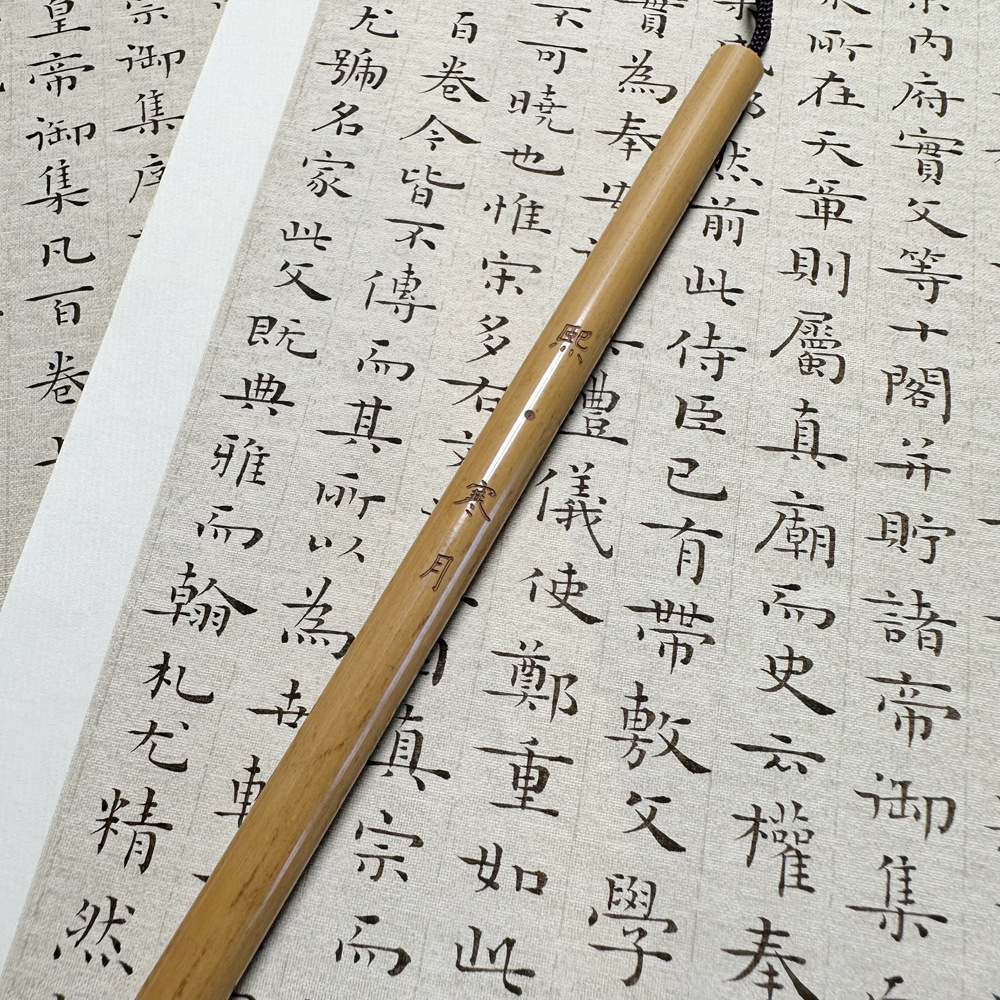 内府實父等十閣并貯諸帝御集
所在天章則屬真廟而史亦權奉
然前此侍臣已有帶敷文學
實為奉安禮儀使鄭重如此
不可曉也惟宋多右文而真宗而
百卷今皆不傳而其所以為世
尤號名家此文既典雅而翰札尤精然
宗御集序
皇帝御集凡百卷
熙·寒月